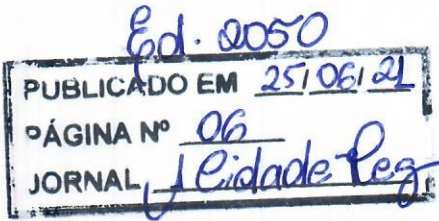 Ed. 2050
PUBLICADO EM 25/06/21
PÁGINA Nº 06
JORNAL J Cidade Reg